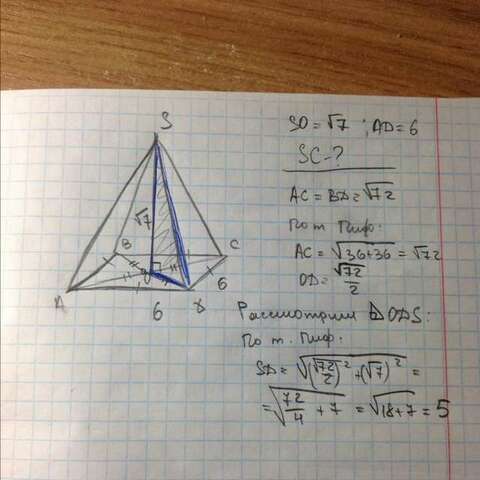 S
√7
B
C
O
A
6
D
6
SO = √7 ; AD = 6
SC - ?
AC = BD = √72
По т. Пиф:
AC = √36+36 = √72
OD = √72/2
Рассмотрим △ODS:
По т. Пиф:
SD = √(√72/2)² + (√7)² =
= √72/4 + 7 = √18+7 = 5